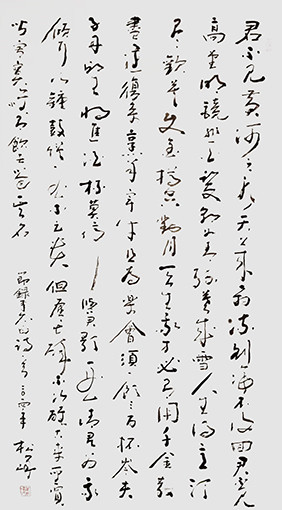 君不見黃河之水天上來奔流到海不復回君不見
高堂明鏡悲白髮朝如青絲暮成雪人生得意須
盡歡莫使金樽空對月天生我才必有用千金散
盡還復來烹羊宰牛且為樂會須一飲三百杯岑夫
子丹丘生將進酒杯莫停與君歌一曲請君為我
傾耳聽鐘鼓饌玉不足貴但願長醉不願醒古來聖賢
皆寂寞惟有飲者留其名
節錄李太白詩